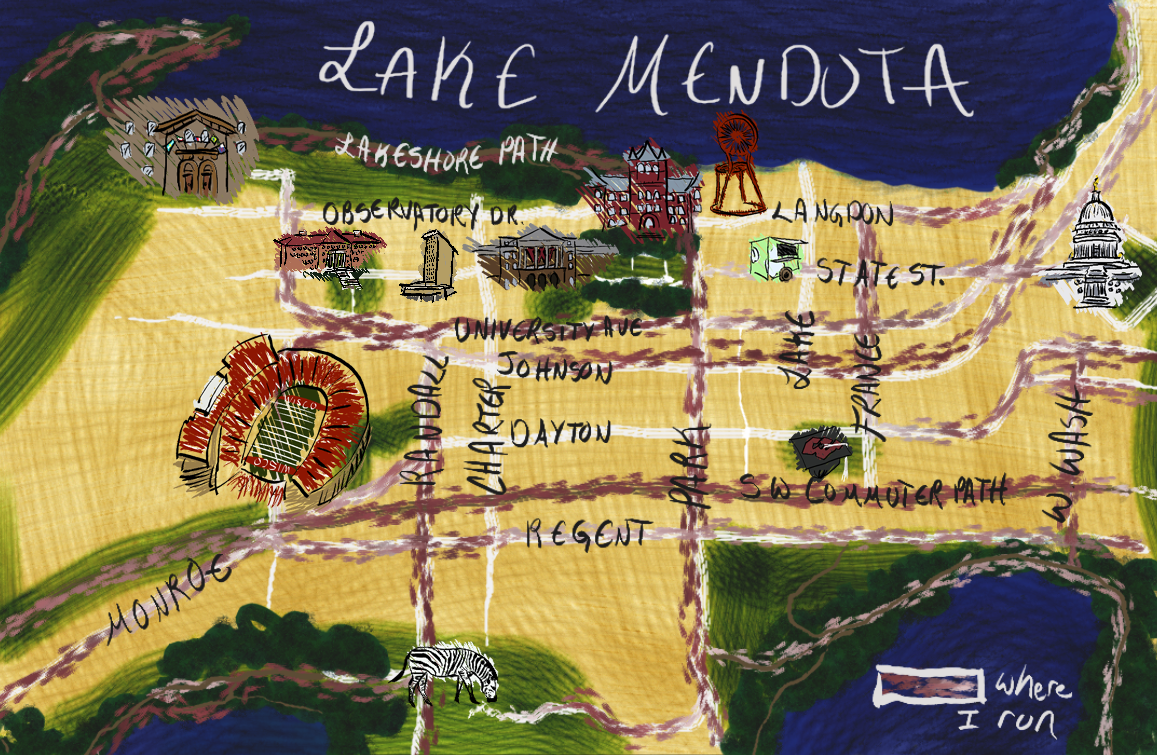 LAKE MENDOTA
LAKESHORE PATH
OBSERVATORY DR.
LANGDON
STATE ST.
UNIVERSITY AVE
JOHNSON
LAKE
FRANCES
RANDALL
CHARTER
DAYTON
WISCO
WISCO
PARK
W. WASH
SW COMMUTER PATH
REGENT
MONROE
where
I run